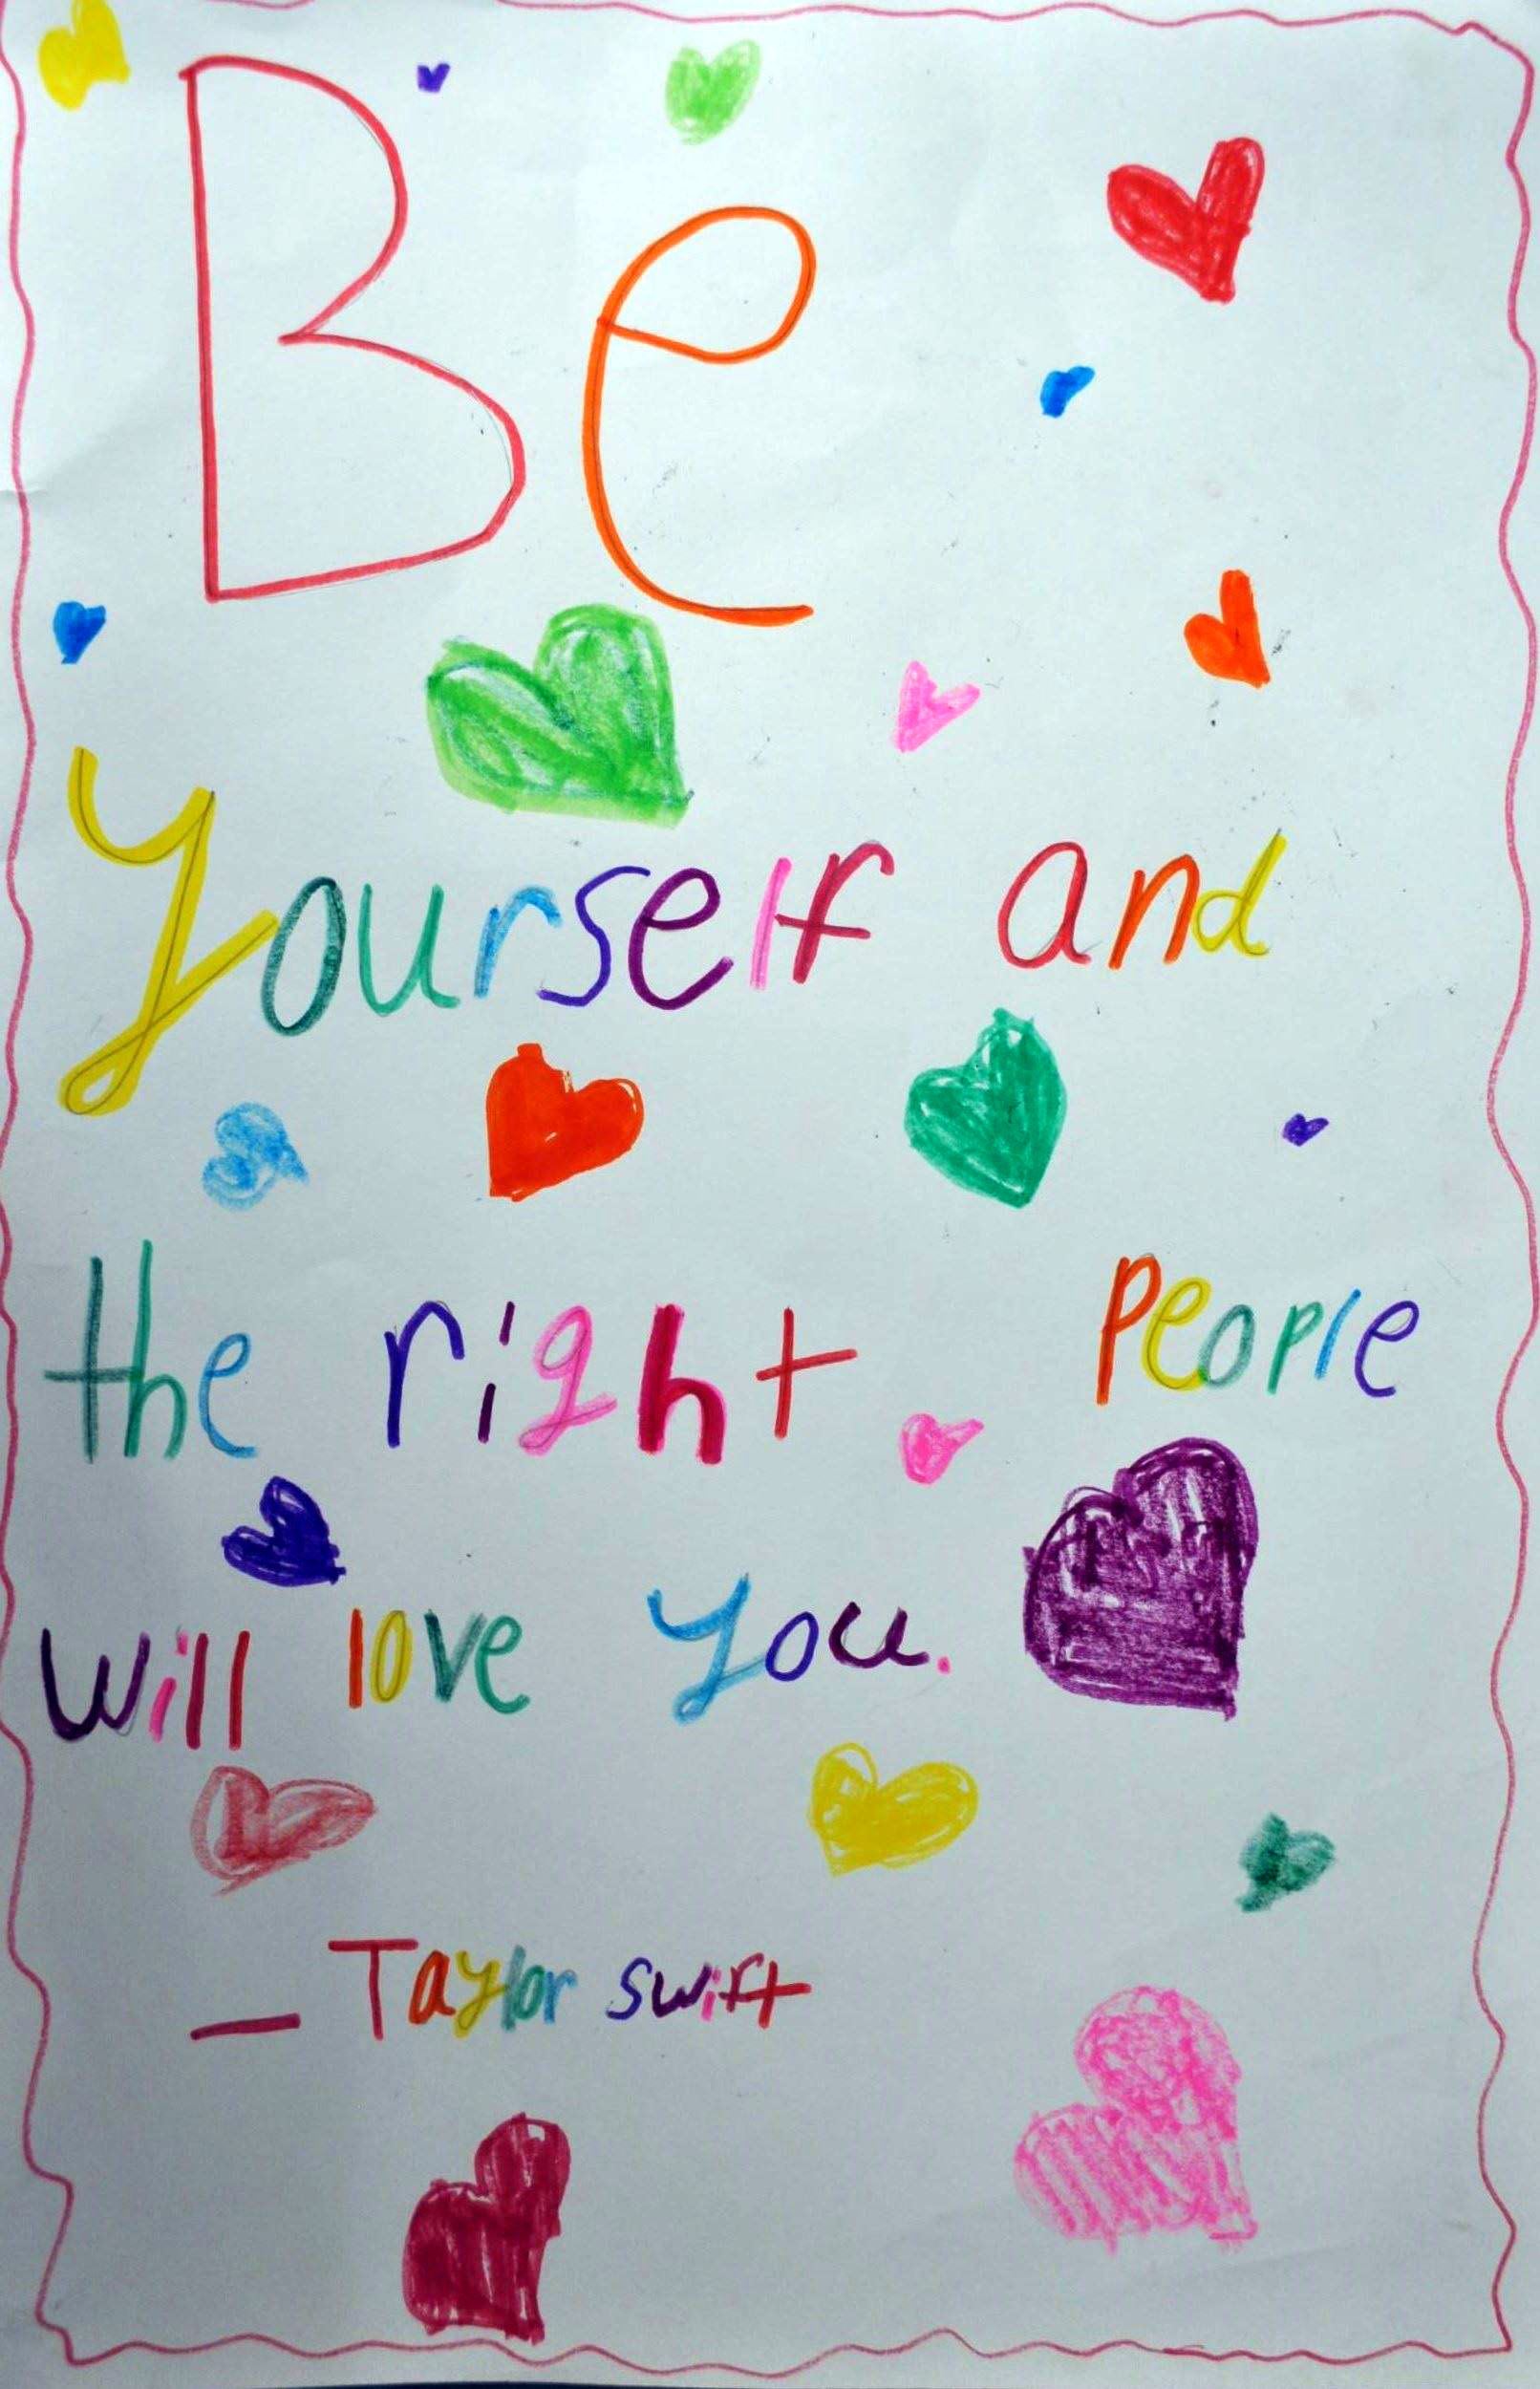 Be
yourself and
the right people
will love you.
— Taylor swift